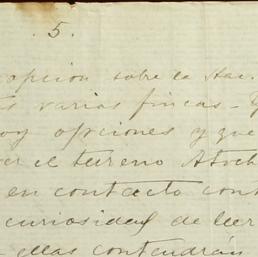 . 5.
opcion sobre la Hac.
varias fincas -
oy opciones y que
er el terreno Atoch
en contacto con
curiosidad de leer
ellas contendrán